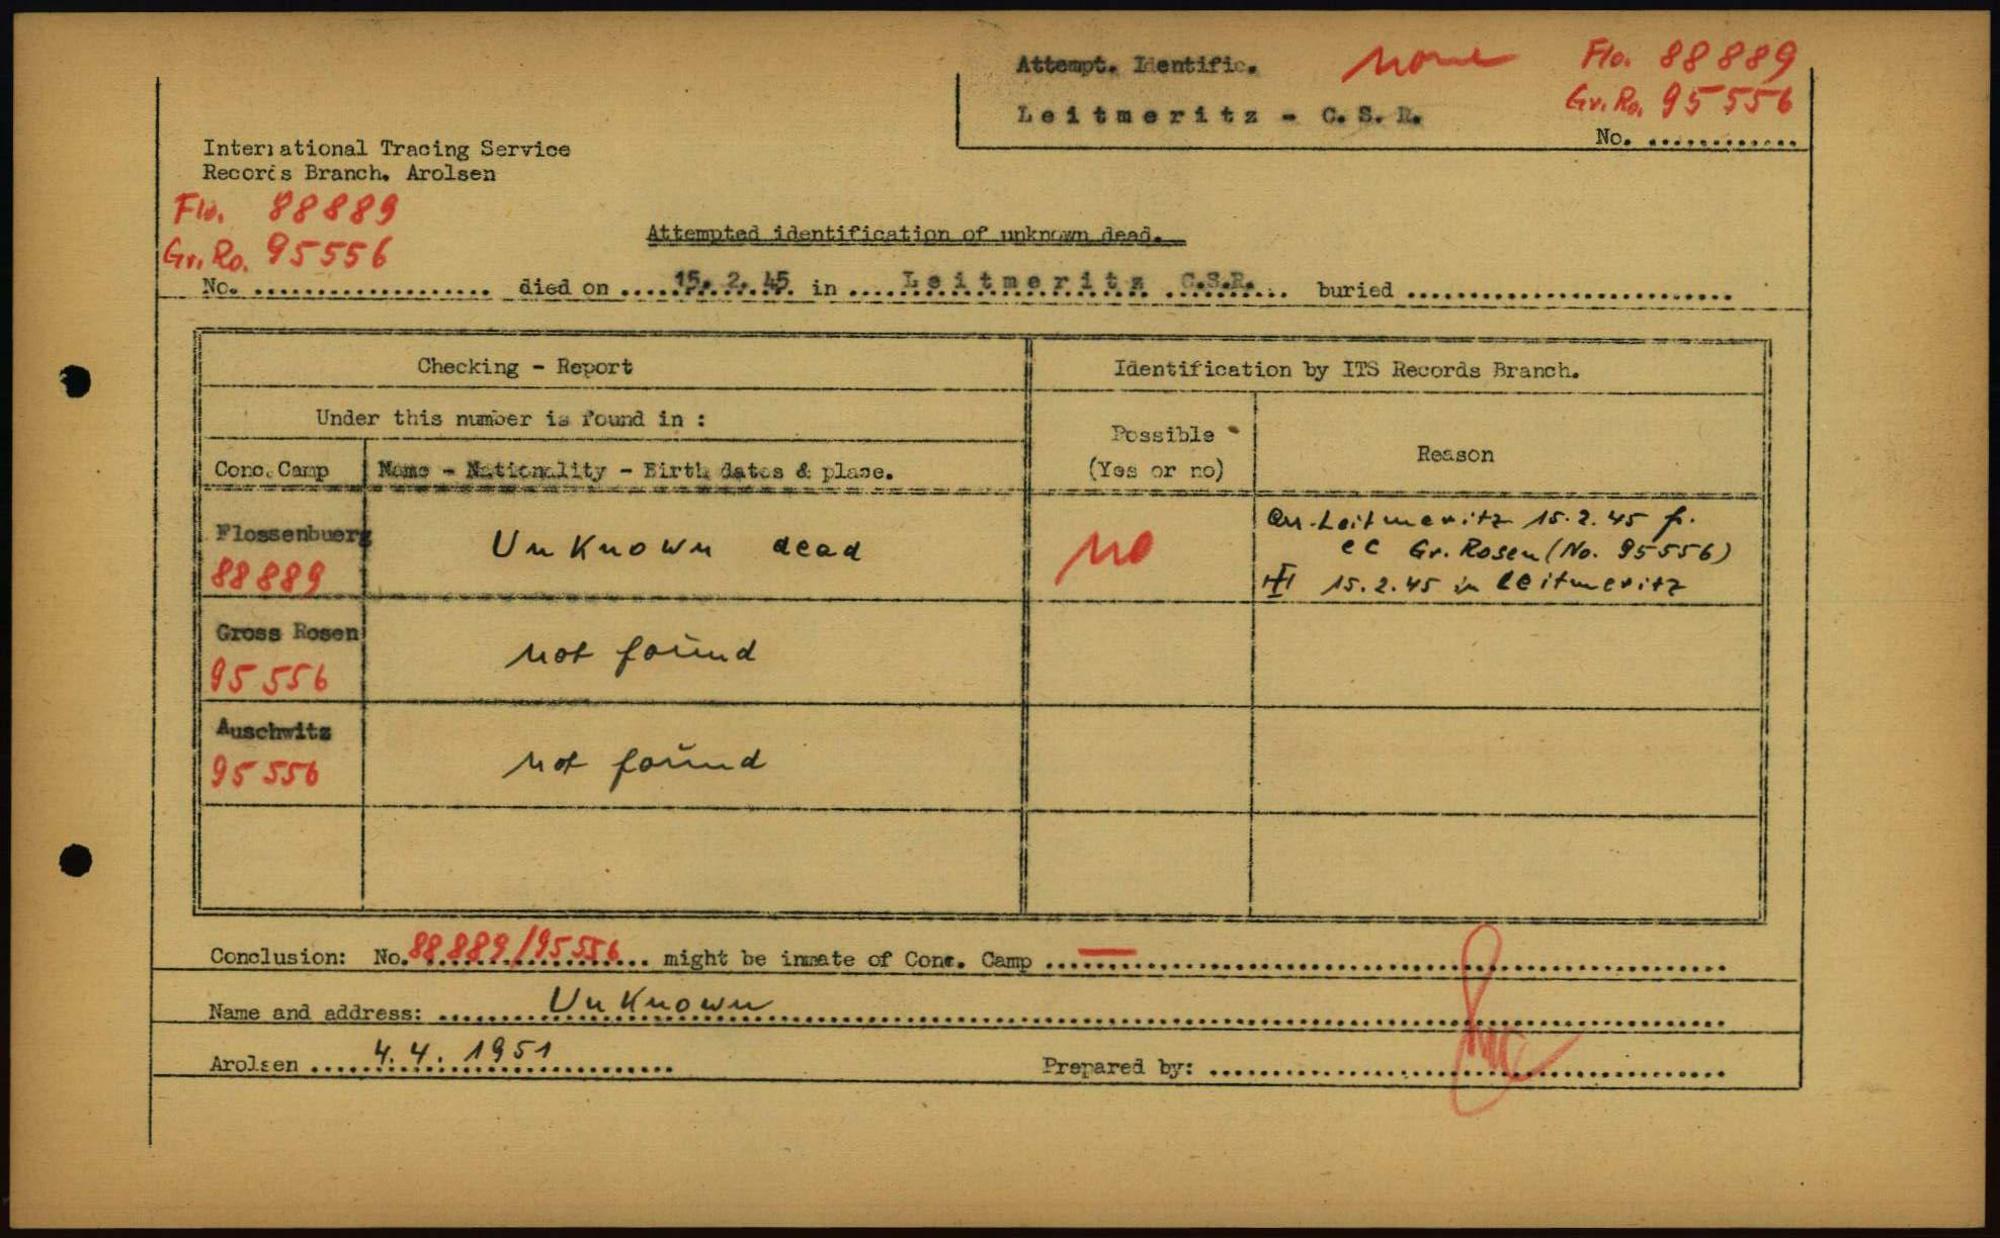 Attempt. Identific. none Flo. 88889
Leitmeritz - C.S.R. Gr.Ro. 95556
No. ............
International Tracing Service
Records Branch. Arolsen
Flo. 88889
Gr.Ro. 95556
Attempted identification of unknown dead.
No. ................... died on ..... 15. 2. 45 in .... Leitmeritz C.S.R. ... buried ..........................
Checking - Report Identification by ITS Records Branch.
Under this number is found in :
Possible
(Yes or no)
Reason
Conc. Camp Name - Nationality - Birth dates & place.
Flossenbuerg
88889
Unknown dead
no
arr. Leitmeritz 15.2.45 f.
CC Gr. Rosen (No. 95556)
15.2.45 in Leitmeritz
Gross Rosen
95556
not found
Auschwitz
95556
not found
Conclusion: No. 88889/95556 ... might be inmate of Conc. Camp ... — ......
Name and address: ........ Unknown ........
Arolsen ..... 4.4.1951 ..........
Prepared by: ..........